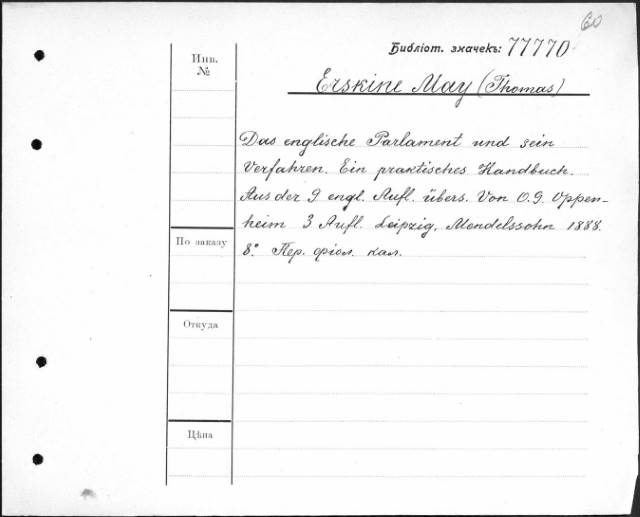 60
Библіот. значекъ: 77770
Инв.
№
Erskine May (Thomas)
Das englische Parlament und sein
Verfahren. Ein praktisches Handbuch.
Aus der 9 engl. Aufl. übers. Von O. G. Oppen-
heim 3 Aufl. Leipzig, Mendelssohn 1888.
8° Пер. фіол. кал.
По заказу
Откуда
Цѣна